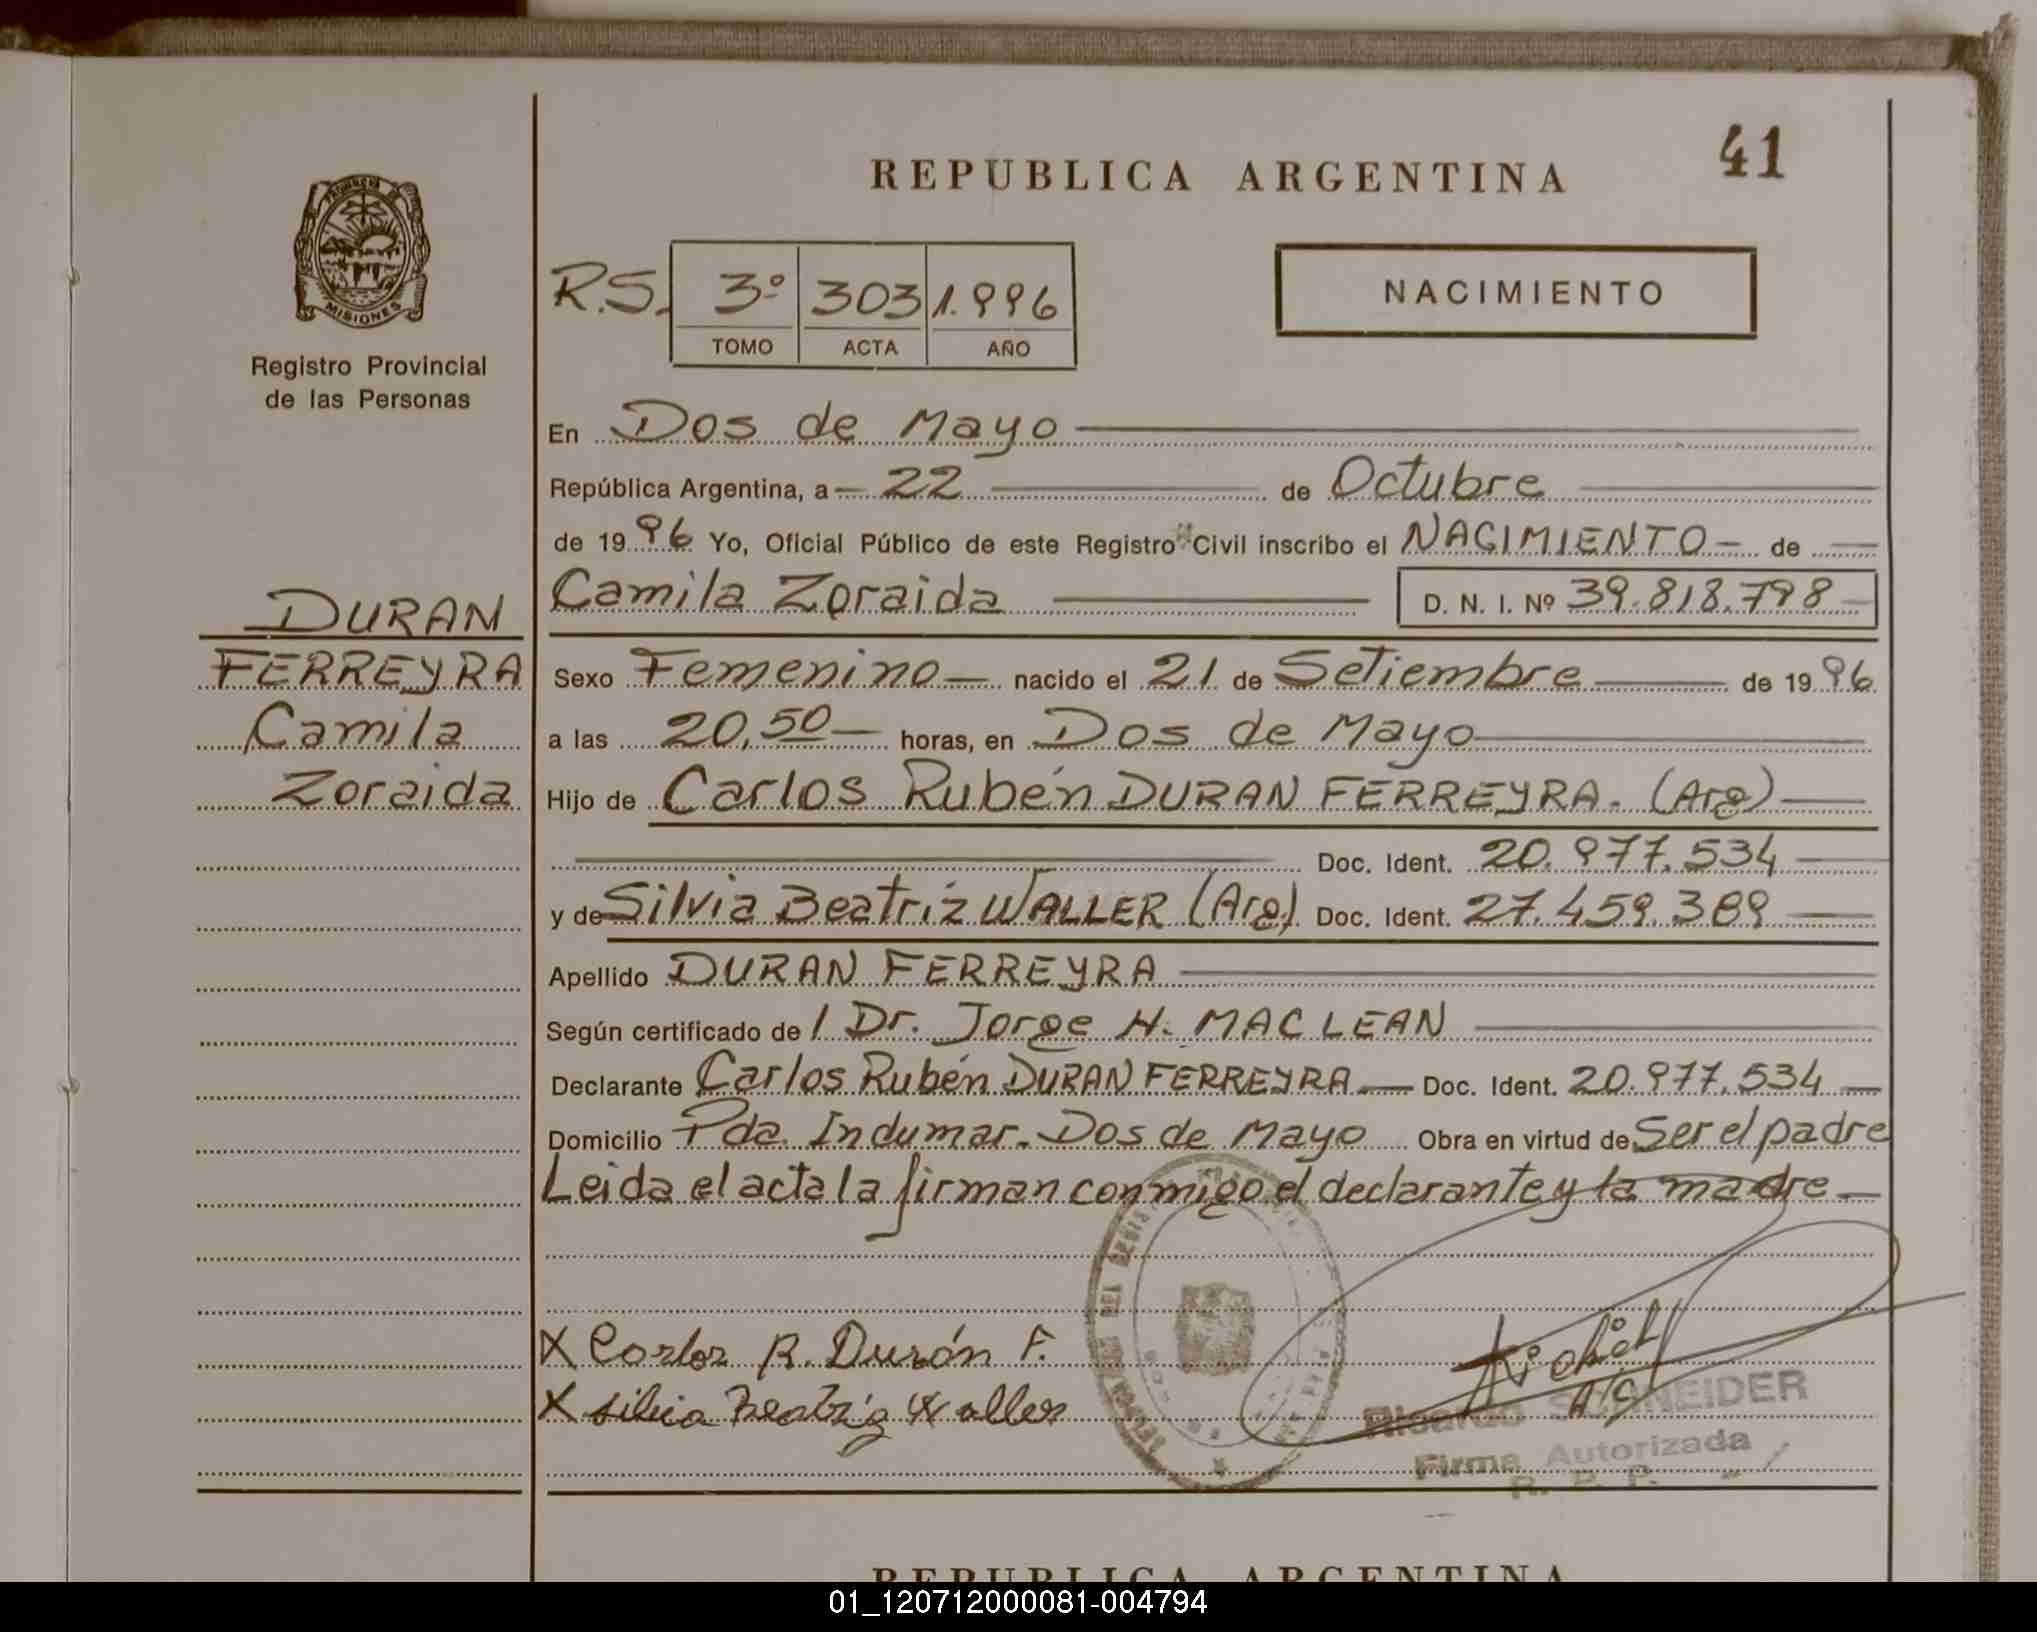 REPUBLICA ARGENTINA
41
PROVINCIA DE
MISIONES
Registro Provincial
de las Personas
R.S. 3º 303 1.996
TOMO ACTA AÑO
NACIMIENTO
En Dos de Mayo
República Argentina, a 22 de Octubre
de 1996 Yo, Oficial Público de este Registro Civil inscribo el NACIMIENTO de
Camila Zoraida D. N. I. Nº 39.818.798
DURAN
FERREYRA
Camila
Zoraida
Sexo Femenino nacido el 21 de Setiembre de 1996
a las 20,50 horas, en Dos de Mayo
Hijo de Carlos Rubén DURAN FERREYRA. (Arg)
Doc. Ident. 20.977.534
y de Silvia Beatriz WALLER (Arg). Doc. Ident. 27.459.389
Apellido DURAN FERREYRA
Según certificado de / Dr. Jorge H. MAC LEAN
Declarante Carlos Rubén DURAN FERREYRA Doc. Ident. 20.977.534
Domicilio Pda. Indumar. Dos de Mayo Obra en virtud de Ser el padre
Leida el acta la firman conmigo el declarante y la madre
X Carlos R. Durán F.
X Silvia Beatriz Waller
Ricardo SCHNEIDER
Firma Autorizada
R. P. P.
REPUBLICA ARGENTINA
01_120712000081-004794